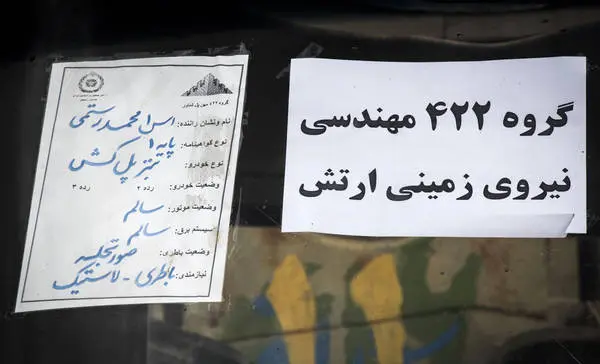 گروه ۴۲۲ مهندسی
نیروی زمینی ارتش
گروه ۴۲۲ مهن پل شناور
نام ونشان راننده: اس۱ محمد رستمی
نوع گواهینامه: پایه ۱
نوع خودرو: بنز پل کش
وضعیت خودرو: رده ۲ رده ۳
وضعیت موتور: سالم
سیستم برق: سالم
وضعیت باطری: صورتجلسه
نیازمندی: باطری - لاستیک